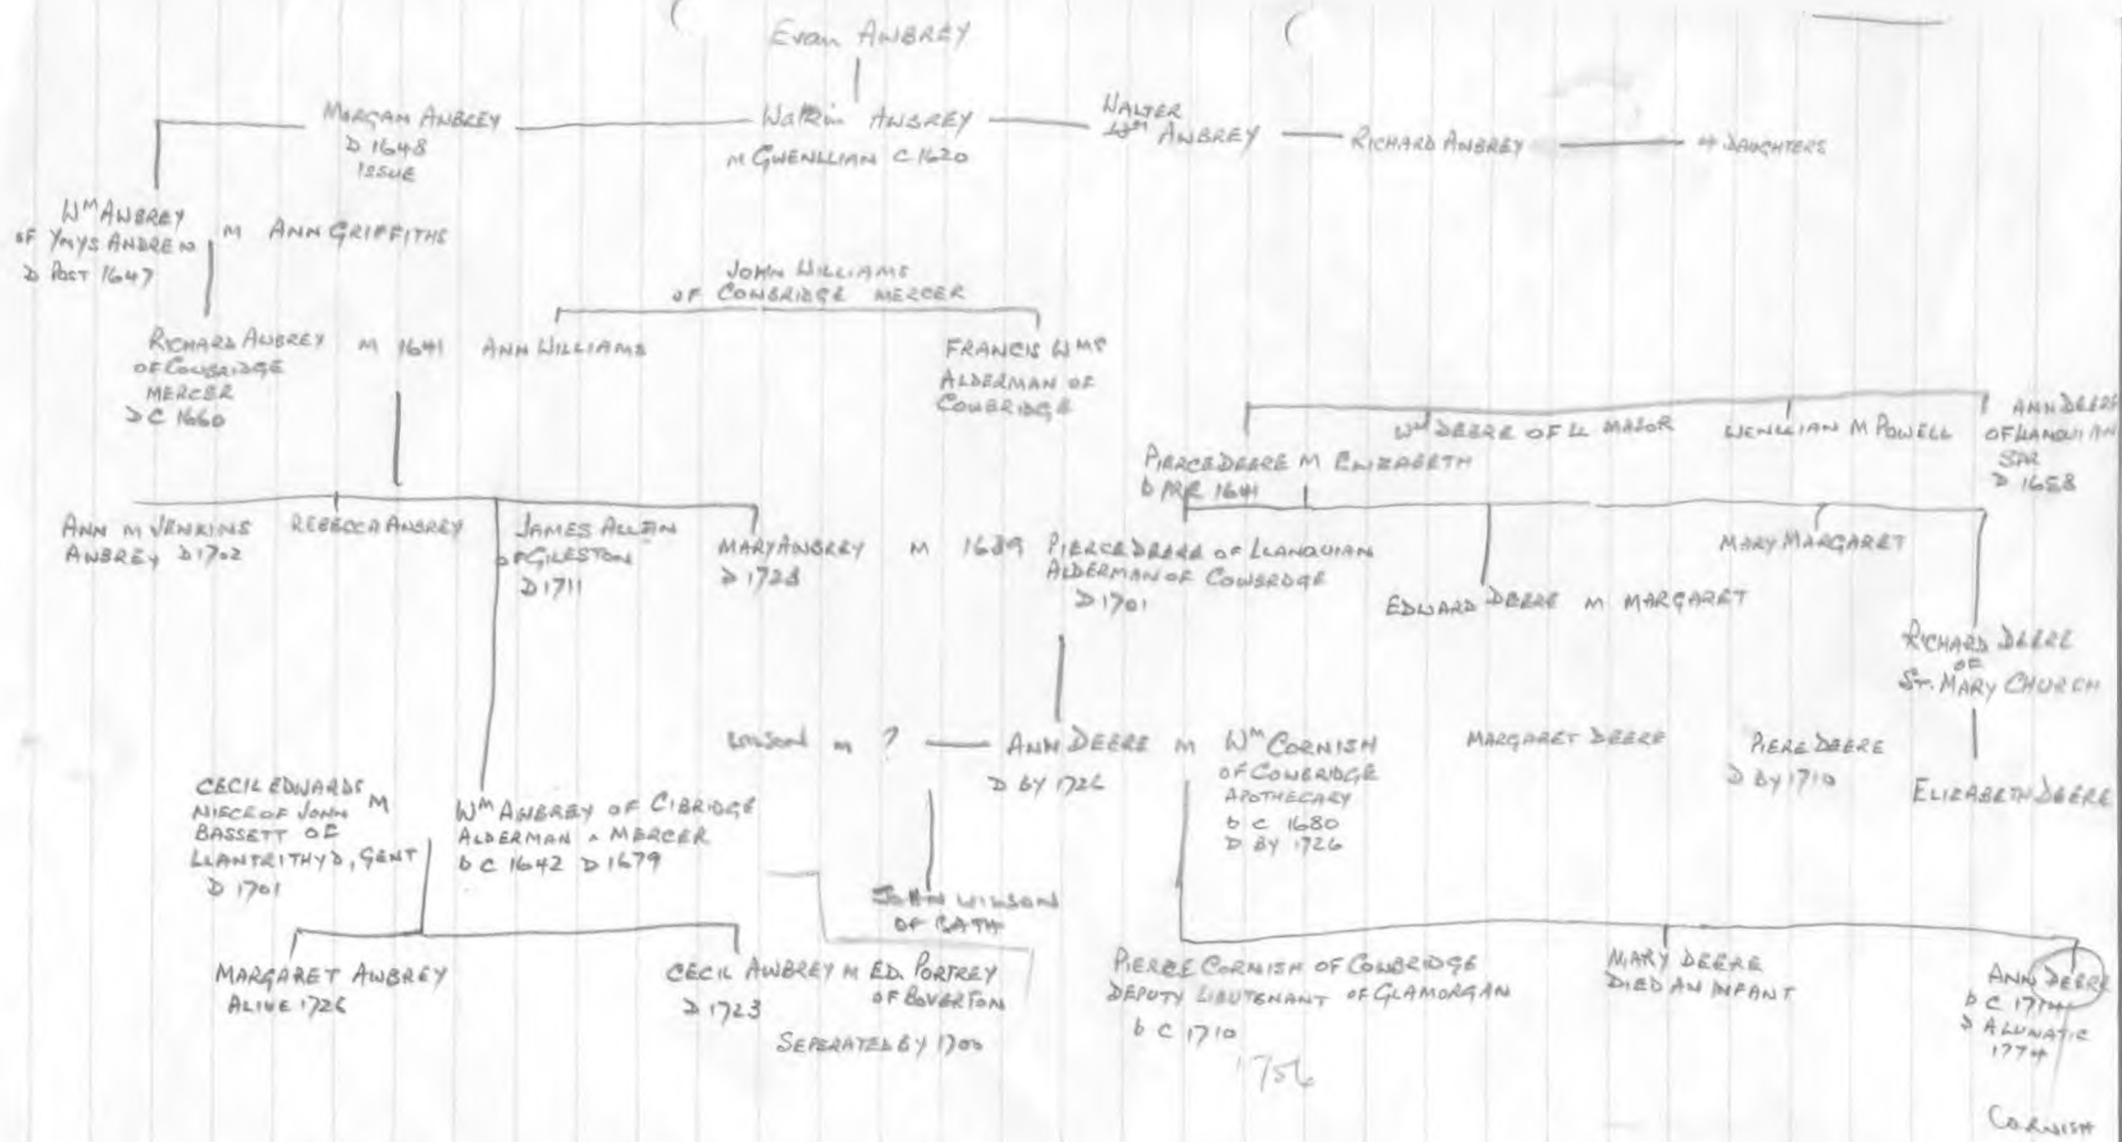 Evan AWBREY
MORGAN AWBREY
D 1648
ISSUE
Watkin AWBREY
M GWENLLIAN C 1620
WALTER
Wm AWBREY
RICHARD AWBREY
4 DAUGHTERS
WM AWBREY
OF YNYS ANDREW
D POST 1647
M ANN GRIFFITHS
JOHN WILLIAMS
OF COWBRIDGE MERCER
RICHARD AWBREY M 1641 ANN WILLIAMS
OF COWBRIDGE
MERCER
D C 1660
FRANCIS WMS
ALDERMAN OF
COWBRIDGE
WM DEERE OF LL MAJOR
WENLLIAN M POWELL
ANN DEERE
OF LLANQUIAN
SPR
D 1658
PIERCE DEERE M ELIZABETH
b PRE 1641
ANN M JENKINS
AWBREY D 1702
REBECCA AWBREY
JAMES ALLEN
OF GILESTON
D 1711
MARY AWBREY M 1689 PIERCE DEERE OF LLANQUIAN
D 1723
ALDERMAN OF COWBRDGE
D 1701
MARY MARGARET
EDWARD DEERE M MARGARET
RICHARD DEERE
OF
ST. MARY CHURCH
WILSON M ? ANN DEERE M WM CORNISH
D BY 1726
OF COWBRIDGE
APOTHECARY
b C 1680
D BY 1726
MARGARET DEERE
PIERE DEERE
D BY 1710
ELIZABETH DEERE
CECIL EDWARDS M
NIECE OF JOHN
BASSETT OF
LLANTRITHYD, GENT
D 1701
WM AWBREY OF C'BRIDGE
ALDERMAN & MERCER
b C 1642 D 1679
JOHN WILSON
OF BATH
MARGARET AWBREY
ALIVE 1726
CECIL AWBREY M ED. PORTREY
D 1723
OF BOVERTON
SEPERATED BY 1700
PIERCE CORNISH OF COWBRIDGE
DEPUTY LIEUTENANT OF GLAMORGAN
b C 1710
1756
MARY DEERE
DIED AN INFANT
ANN DEERE
b C 1714
D A LUNATIC
1774
CORNISH